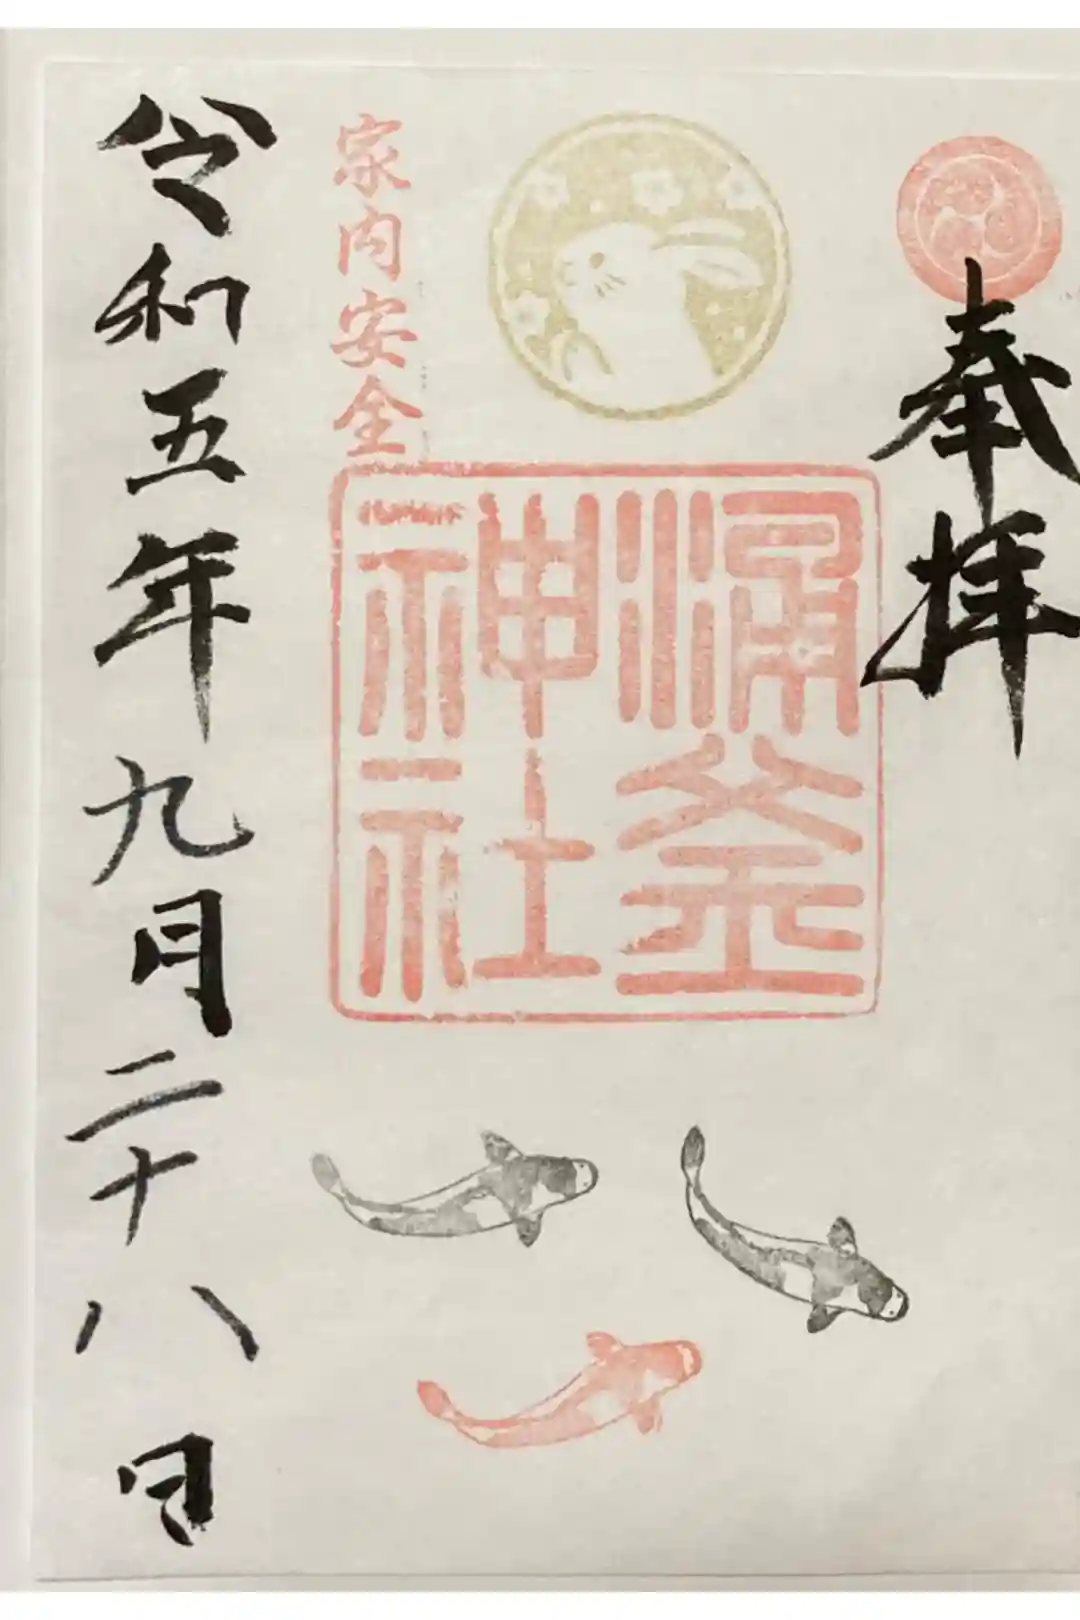 奉拝
涌釜
神社
家内安全
令和五年九月二十八日